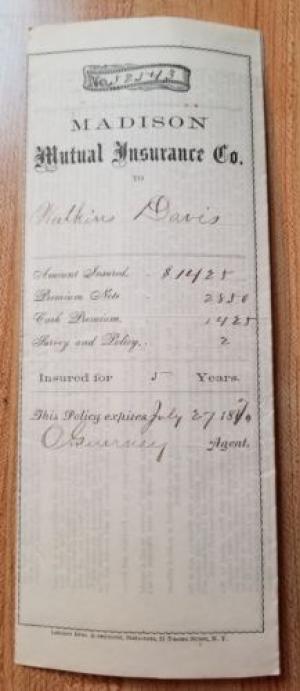 No. 12543
MADISON
Mutual Insurance Co.
TO
Watkins Davis
Amount Insured, - $1425
Premium Note - 2850
Cash Premium, 1425
Survey and Policy, - 2
Insured for 5 Years.
This Policy expires July 27 1870
Agent.
N. Y.